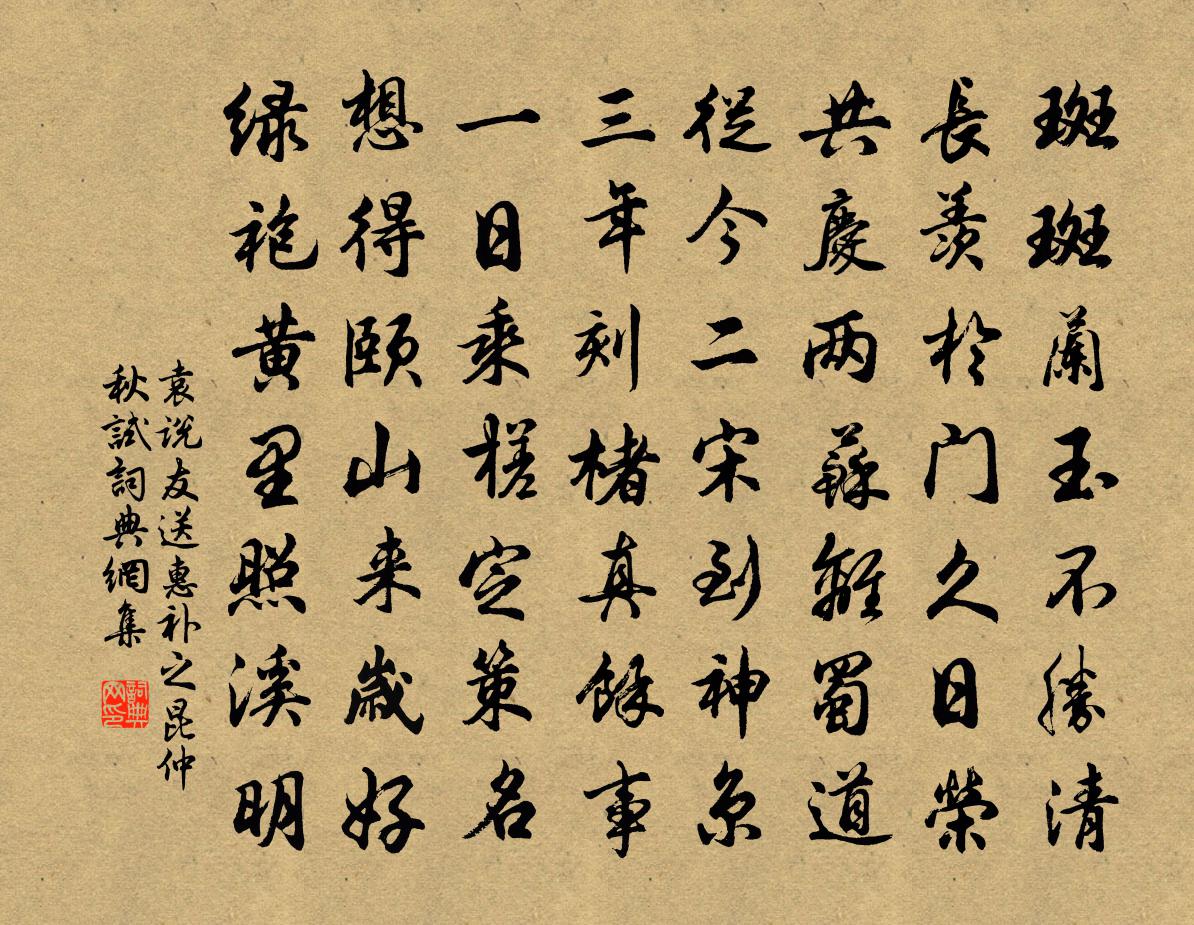 斑斑蘭玉不勝清
長羨於门久日榮
共慶两蘇離蜀道
從今二宋到神京
三年刻楮真餘事
一日乘槎定策名
想得頤山来歲好
绿袍黄里照溪明
袁说友送惠补之昆仲
秋試詞典網集
詞典网印